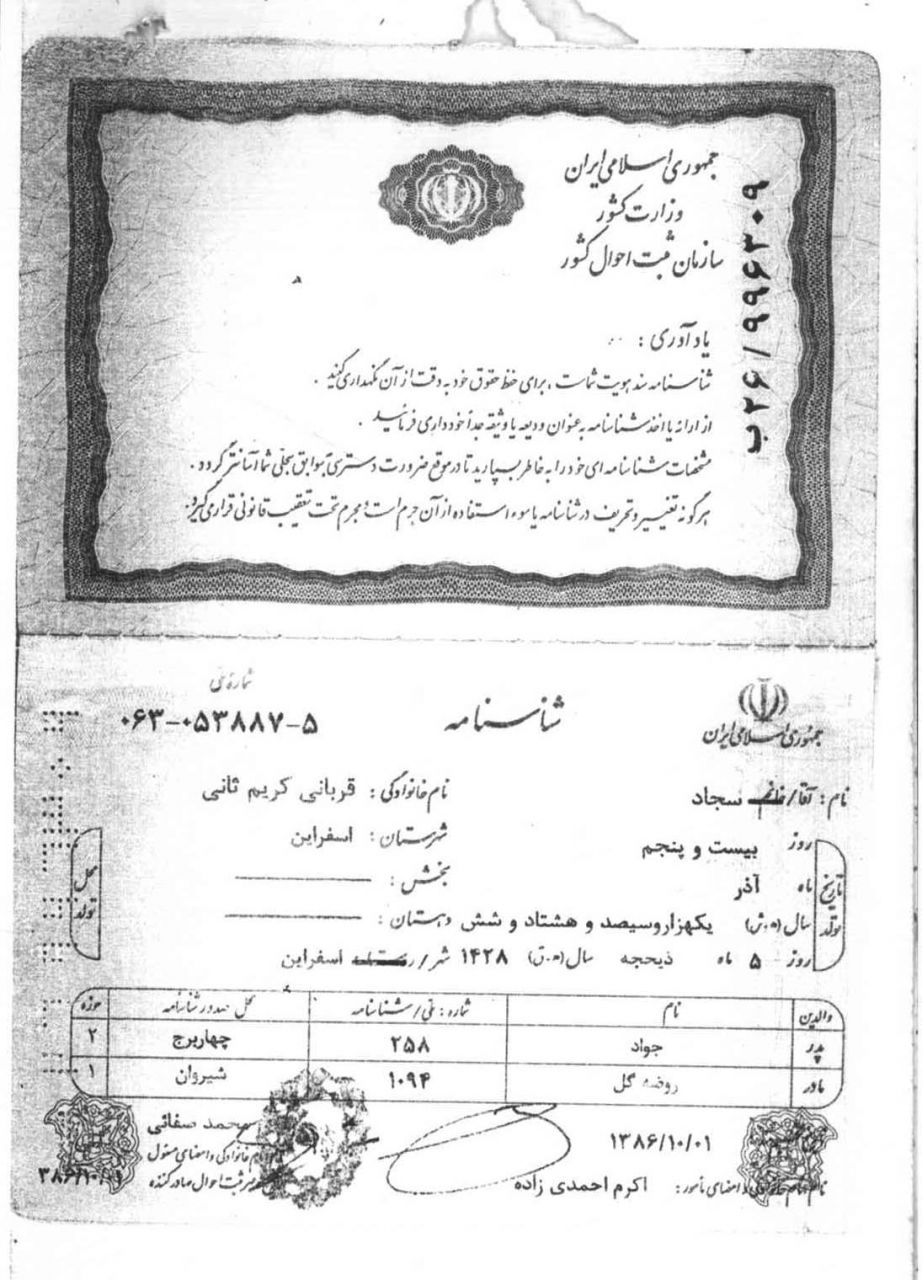 جمهوری اسلامی ایران
وزارت کشور
سازمان ثبت احوال کشور
ب۲۶/۹۹۶۳۰۹
یادآوری :
شناسنامه سند هویت شماست ، برای حفظ حقوق خود به دقت از آن نگهداری کنید .
از ارائه یا اخذ شناسنامه به عنوان ودیعه یا وثیقه جداً خودداری فرمائید .
مشخصات شناسنامه ای خود را به خاطر بسپارید تا در موقع ضرورت دسترسی به سوابق سجلی شما آسانتر گردد .
هرگونه تغییر و تحریف در شناسنامه یا سوء استفاده از آن جرم است و مجرم تحت تعقیب قانونی قرار می گیرد .
جمهوری اسلامی ایران
شناسنامه
شماره ملی
۰۶۳-۰۵۳۸۸۷-۵
نام : آقا/خانم سجاد
نام خانوادگی : قربانی کریم ثانی
تاریخ تولد
روز بیست و پنجم
ماه آذر
سال (ه.ش) یکهزاروسیصد و هشتاد و شش
روز ۵ ماه ذیحجه سال (ه.ق) ۱۴۲۸
محل تولد
شهرستان : اسفراین
بخش :
دهستان :
شهر/روستا اسفراین
والدین نام شماره : ملی/شناسنامه محل صدور شناسنامه حوزه
پدر جواد ۲۵۸ چهاربرج ۲
مادر روضه گل ۱۰۹۴ شیروان ۱
۱۳۸۶/۱۰/۰۱
نام و نام خانوادگی و امضای مأمور : اکرم احمدی زاده
محمد صفائی
نام خانوادگی و امضای مسئول
ثبت احوال صادر کننده
۳۸۶/۱۰/۰۱